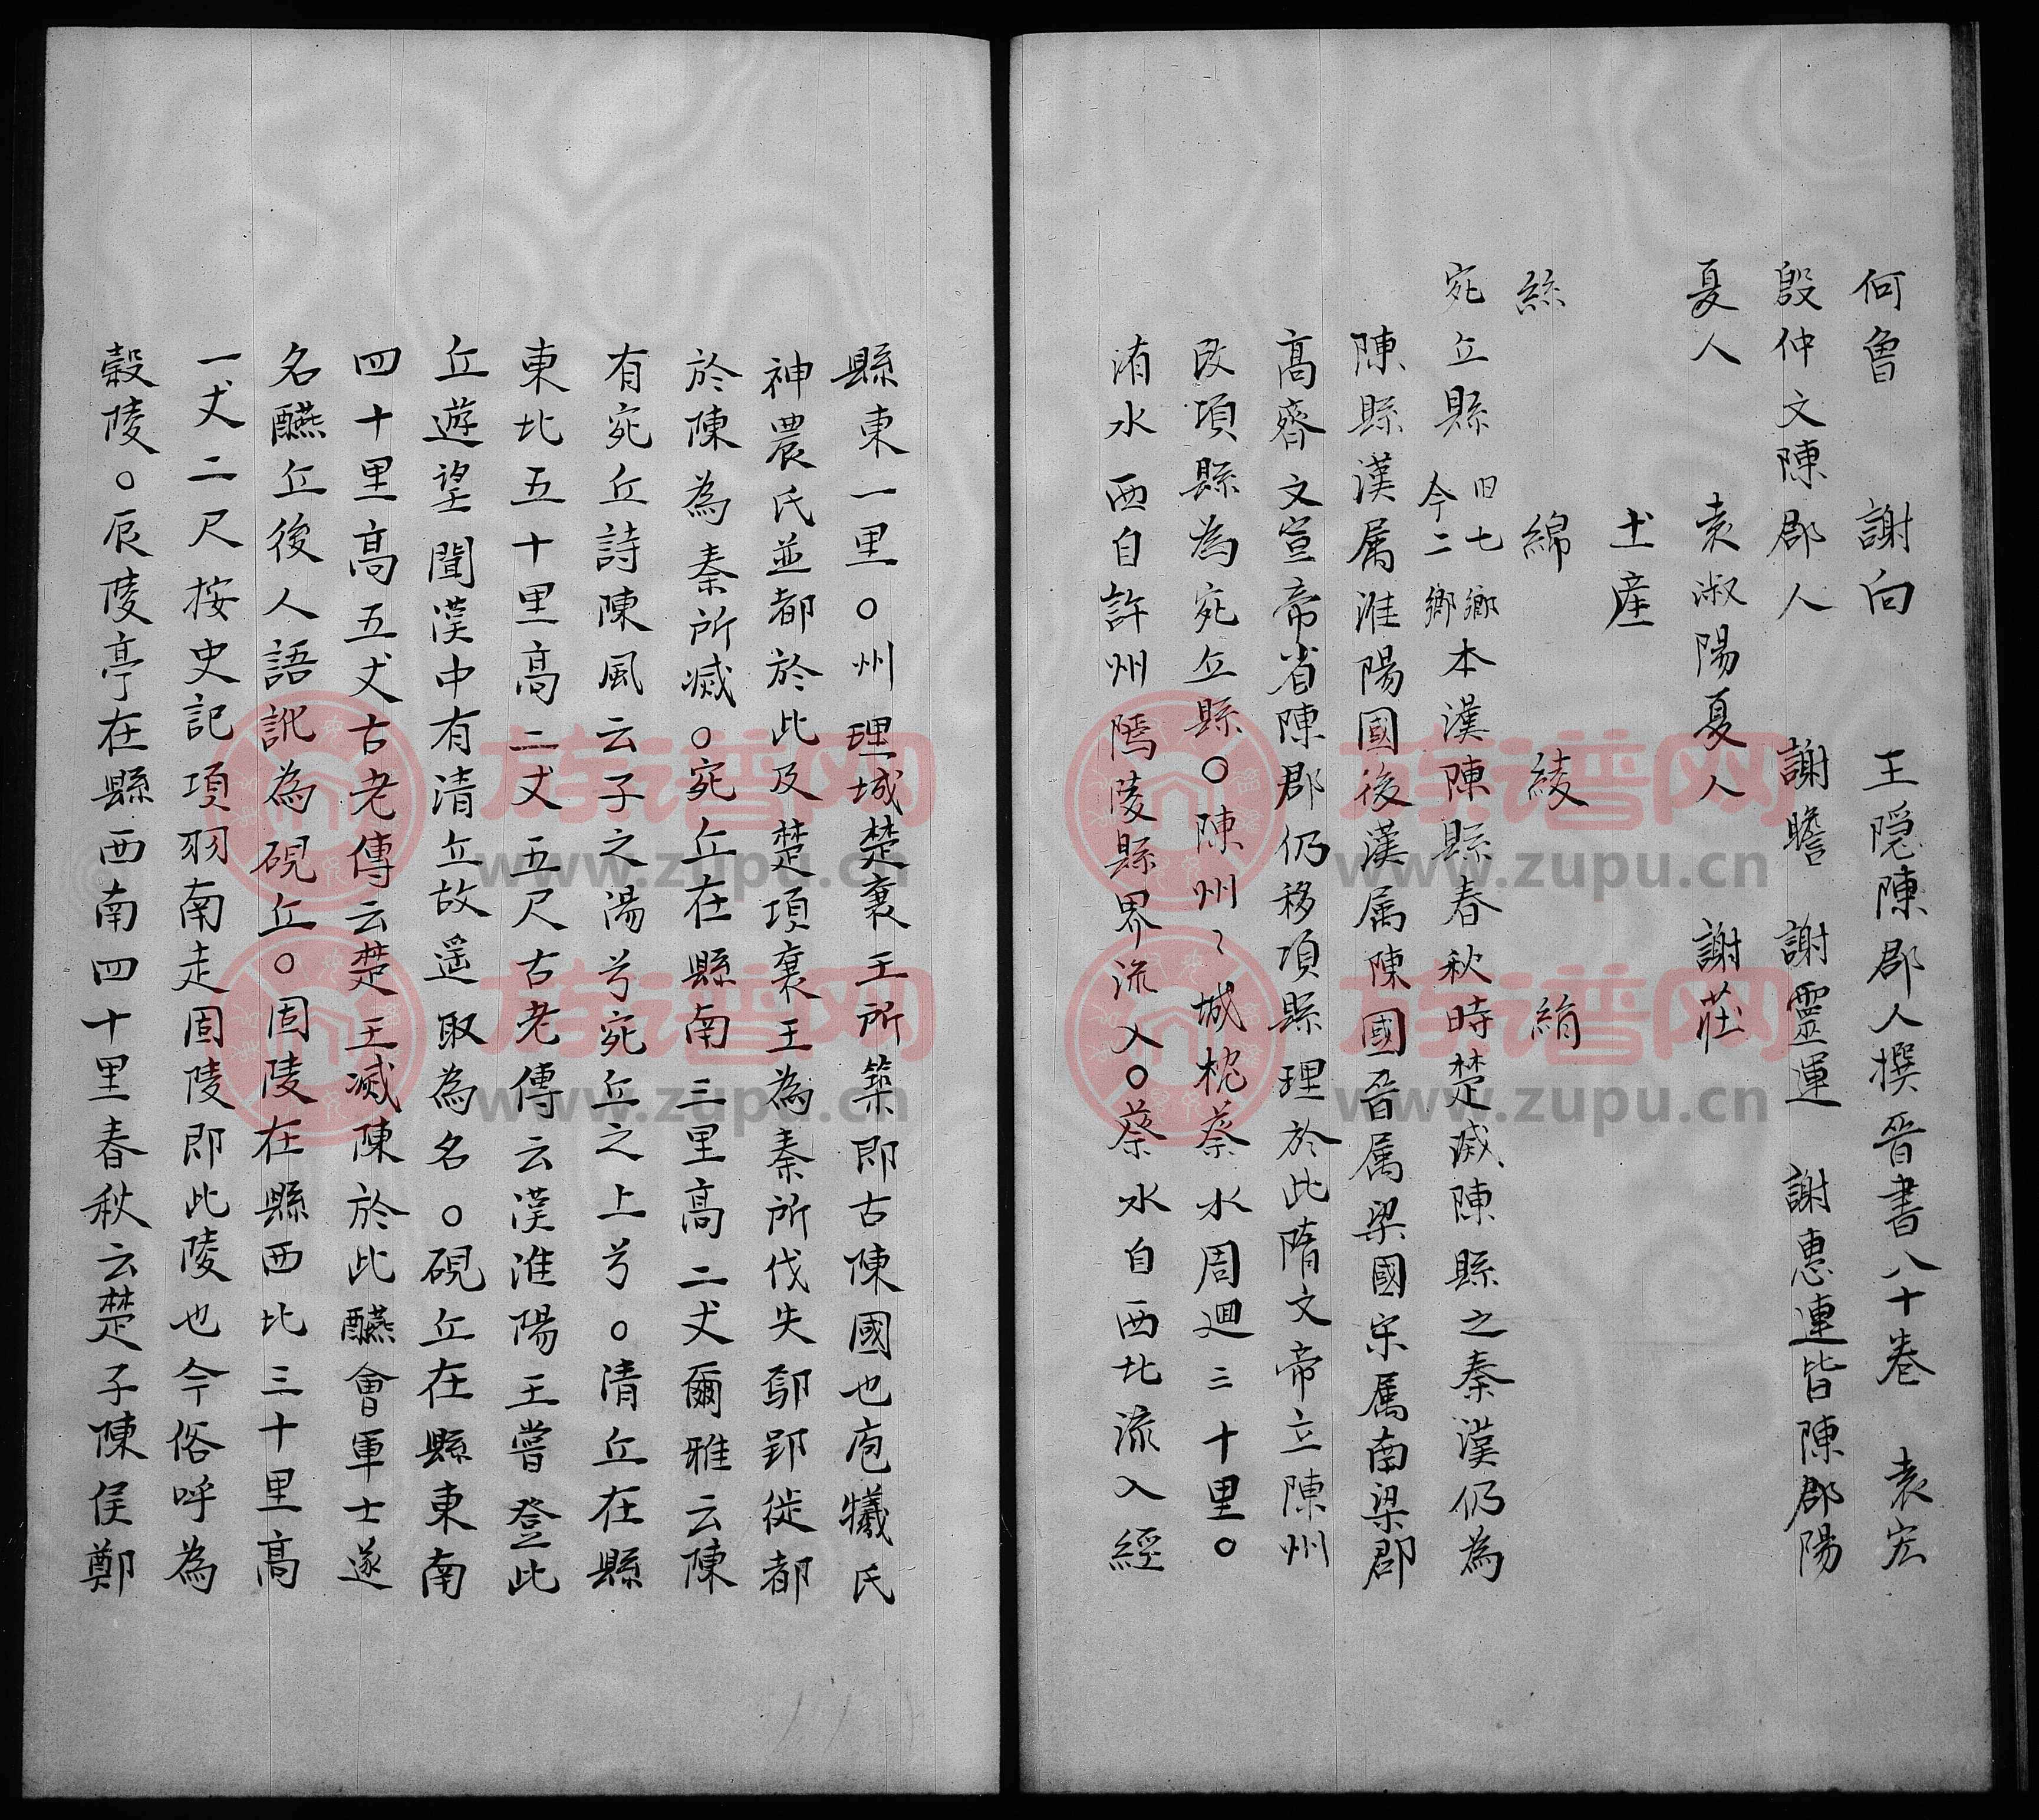 何魯　謝向　王隠陳郡人撰晉書八十巻　袁宏
殷仲文陳郡人　謝瞻　謝靈運　謝惠連皆陳郡陽
夏人　袁淑陽夏人　謝莊
土産
絲　綿　綾　絹
宛丘縣旧七鄉今二鄉本漢陳縣春秋時楚滅陳縣之秦漢仍為
陳縣漢属淮陽國後漢属陳國晉属梁國宋属南梁郡
髙齊文宣帝省陳郡仍移項縣理於此隋文帝立陳州
改項縣為宛丘縣○陳州〻城枕蔡水周迴三十里○
洧水西自許州隖陵縣界流入○蔡水自西北流入經
縣東一里○州理城楚襄王所築即古陳國也庖犧氏
神農氏並都於此及楚項襄王為秦所伐失鄢郢徙都
於陳為秦所滅○宛丘在縣南三里高二丈爾雅云陳
有宛丘詩陳風云子之湯兮宛丘之上兮○清丘在縣
東北五十里高二丈五尺古老傳云漢淮陽王嘗登此
丘遊望聞漢中有清丘故遥取為名○硯丘在縣東南
四十里高五丈古老傳云楚王滅陳於此醼會軍士遂
名醼丘後人語訛為硯丘○固陵在縣西北三十里高
一丈二尺按史記項羽南走固陵即此陵也今俗呼為
穀陵○辰陵亭在縣西南四十里春秋云楚子陳侯鄭
族谱网
www.zupu.cn
族谱网
www.zupu.cn
族谱网
www.zupu.cn
族谱网
www.zupu.cn